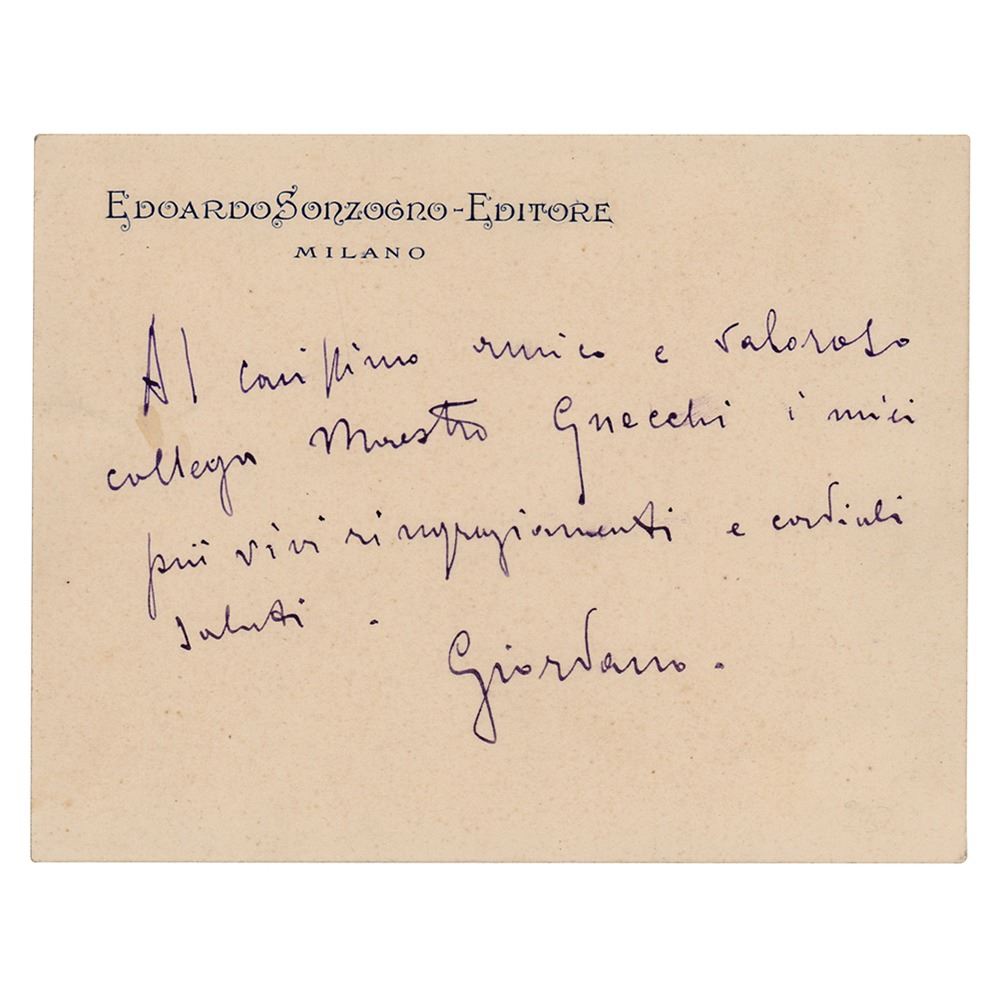 EDOARDO SONZOGNO - EDITORE
MILANO
Al carissimo amico e valoroso
collega Maestro Gnecchi i miei
più vivi ringraziamenti e cordiali
saluti.
Giordano.